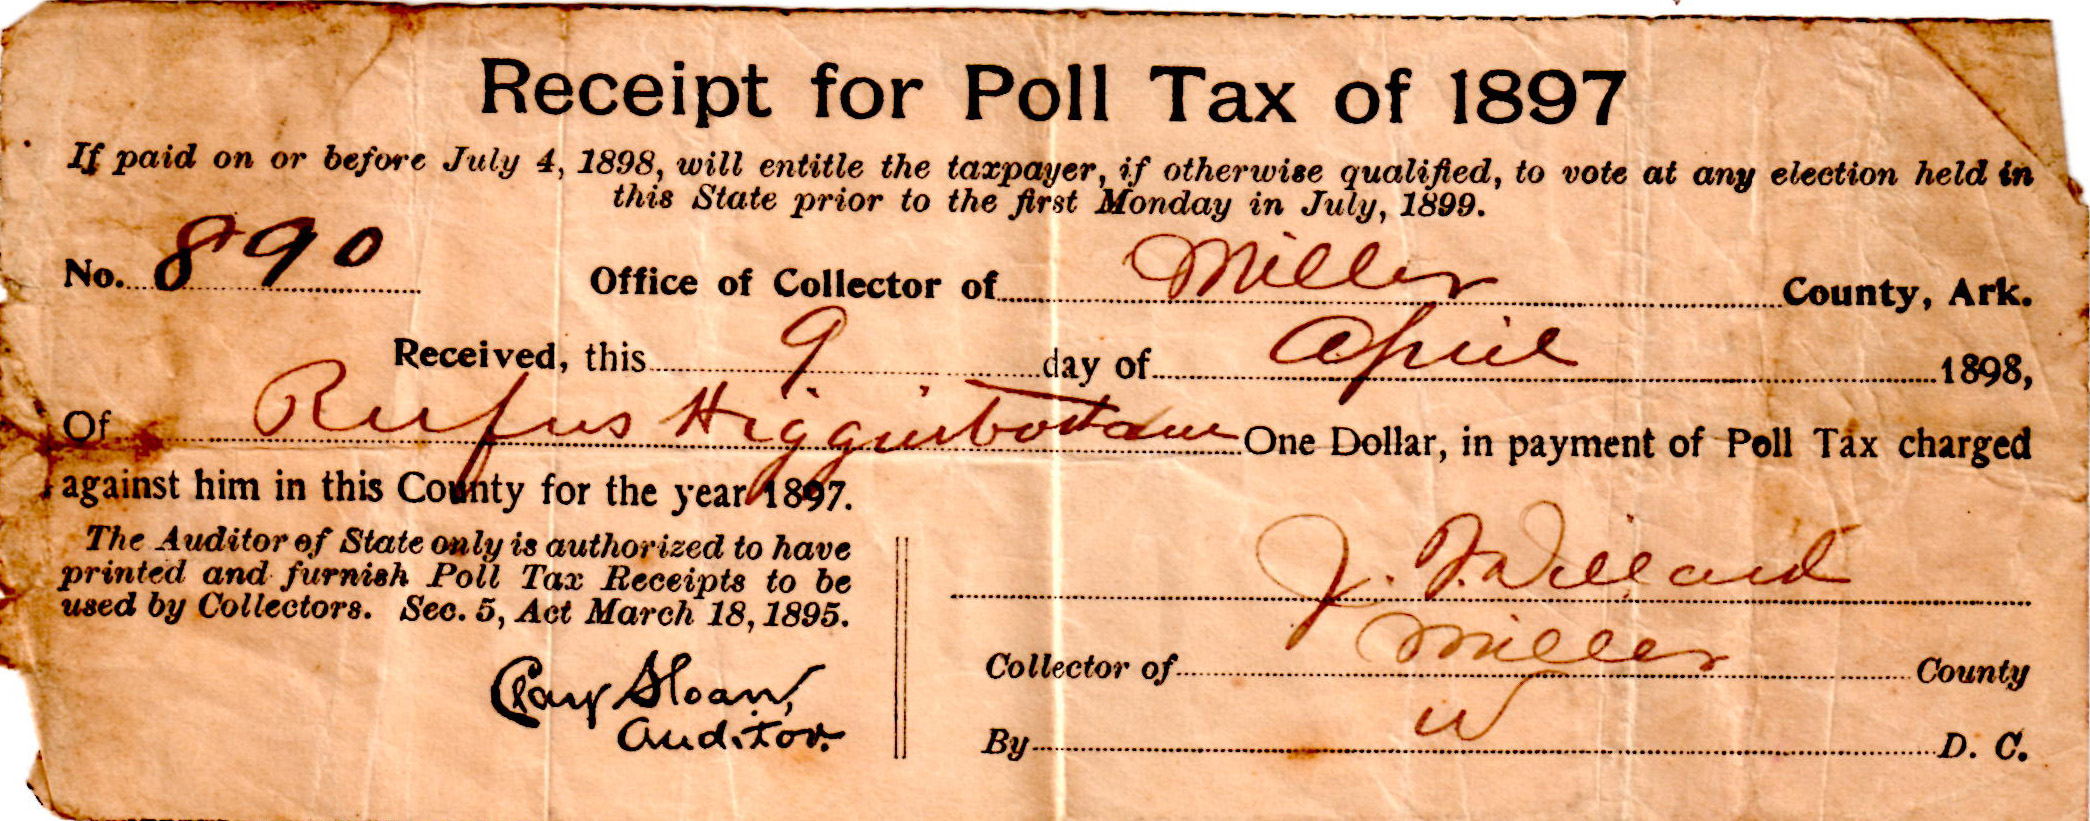 Receipt for Poll Tax of 1897
If paid on or before July 4, 1898, will entitle the taxpayer, if otherwise qualified, to vote at any election held in
this State prior to the first Monday in July, 1899.
No. 890 Office of Collector of Miller County, Ark.
Received, this 9 day of April 1898,
Of Rufus Higginbottom One Dollar, in payment of Poll Tax charged
against him in this County for the year 1897.
The Auditor of State only is authorized to have
printed and furnish Poll Tax Receipts to be
used by Collectors. Sec. 5, Act March 18, 1895.
Clay Sloan,
Auditor.
J. F. Willard
Collector of Miller County
By W D. C.